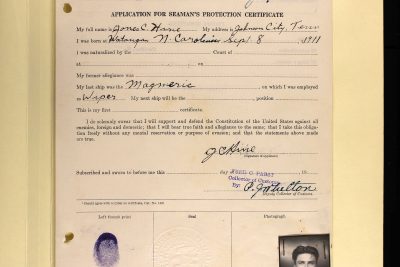 APPLICATION FOR SEAMAN'S PROTECTION CERTIFICATE
My full name is Jones C. Hine My address is Johnson City, Tenn
I was born at Watauga N. Carolina Sept. 8 1911
I was naturalized by the Court of
at on
My former allegiance was
My last ship was the Magmeric, on which I was employed
as Wiper. My next ship will be the position
This is my first certificate.
I do solemnly swear that I will support and defend the Constitution of the United States against all
enemies, foreign and domestic; that I will bear true faith and allegiance to the same; that I take this obligation
freely without any mental reservation or purpose of evasion; and that the statements above made
are true.
J C Hine
(Signature of applicant)
Subscribed and sworn to before me this day 19
FRED C. PABST
Collector of Customs
By: Fulton
Deputy Collector of Customs.
Left thumb print
Photograph